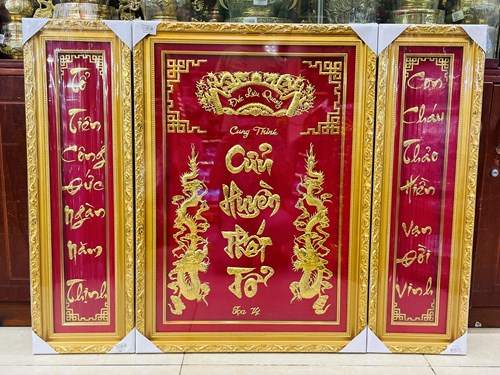 Tổ
Tiên
Công
Đức
Ngàn
Năm
Thịnh
Đức Lưu Quang
Cung Thỉnh
Cửu
Huyền
Thất
Tổ
Tọa Vị
Con
Cháu
Thảo
Hiền
Vạn
Đời
Vinh